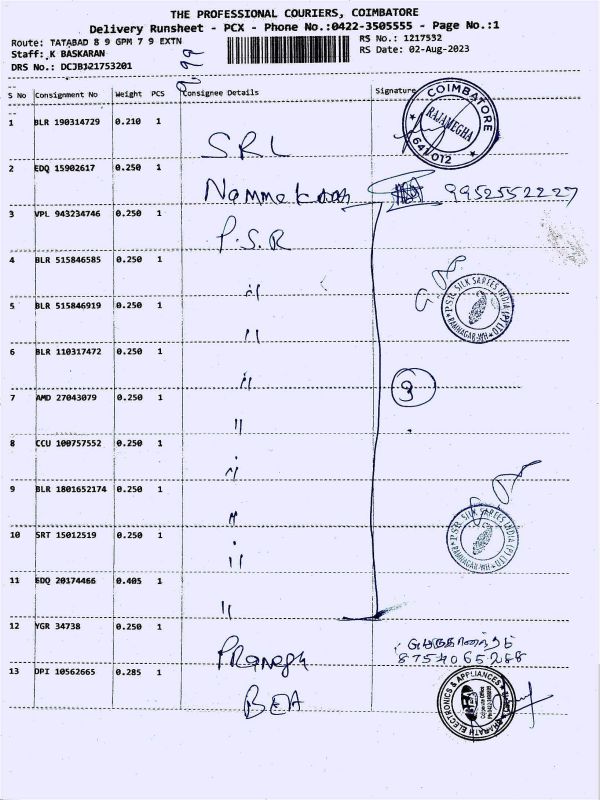 THE PROFESSIONAL COURIERS, COIMBATORE
Delivery Runsheet - PCX - Phone No.:0422-3505555 - Page No.:1
Route: TATABAD 8 9 GPM 7 9 EXTN
RS No.: 1217532
Staff: K BASKARAN
RS Date: 02-Aug-2023
DRS No.: DCJBJ21753201
S No Consignment No Weight PCS Consignee Details Signature
1 BLR 190314729 0.210 1 SRL
COIMBATORE
RAJAMEGHA
641 012
2 EDQ 15902617 0.250 1 9952552227
3 VPL 943234746 0.250 1 P.S.R
4 BLR 515846585 0.250 1 "
PSR SILK SAREES INDIA (P) LTD
RAMNAGAR-WH
5 BLR 515846919 0.250 1 "
6 BLR 110317472 0.250 1 "
7 AMD 27043079 0.250 1 "
8 CCU 100757552 0.250 1 "
9 BLR 1801652174 0.250 1 "
PSR SILK SAREES INDIA (P) LTD
RAMNAGAR-WH
10 SRT 15012519 0.250 1 "
11 EDQ 20174466 0.405 1 "
12 YGR 34738 0.250 1 Pranegh
8754065288
13 DPI 10562665 0.285 1 BEA
BHARATH ELECTRONICS & APPLIANCES